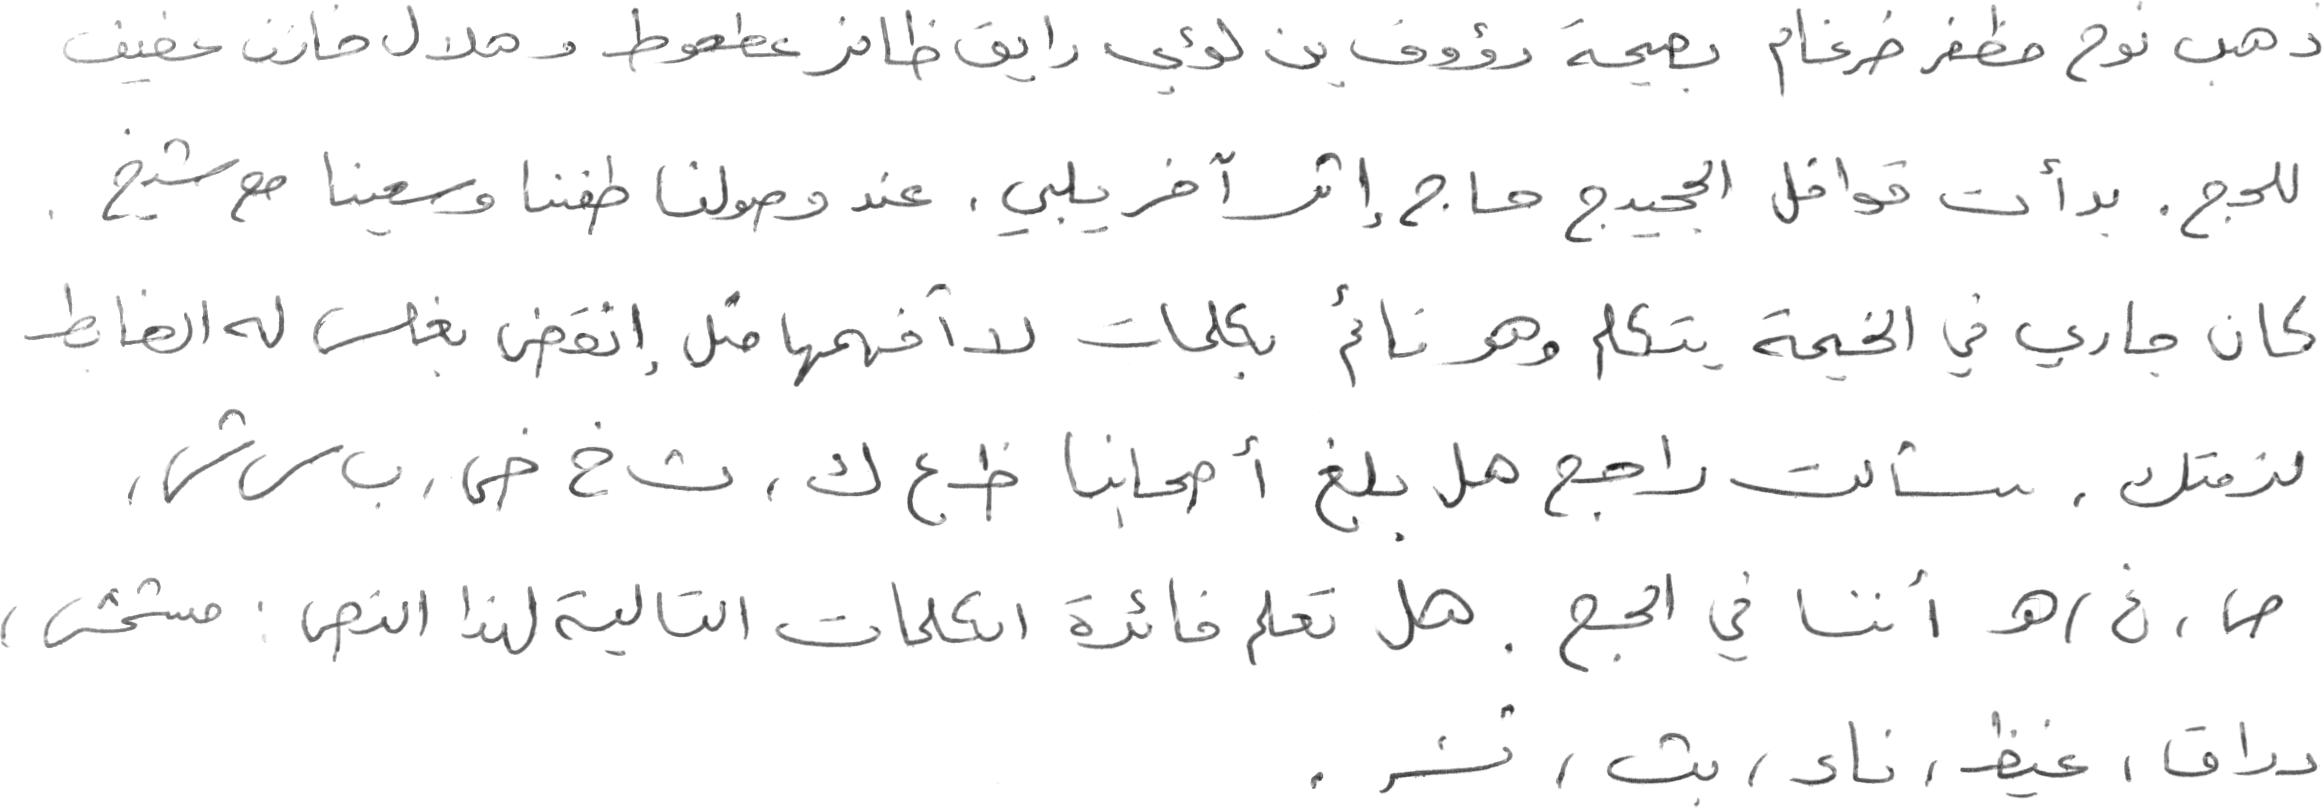 ذهب نوح مظفر ضرغام بصحبة رؤوف بن لؤي رايق ظافر عطعوط و هلال خازن عفيف
للحج . بدأت قوافل الحجيج حاج إثر آخر يلبي . عند وصولنا طفنا وسعينا مع شيخ .
كان جاري في الخيمة يتكلم وهو نائم بكلمات لا أفهمها مثل إنقض بغلس له الضابط
لذمتك . سألت راجح هل بلغ أصحابنا ظ ع ك ، ث خ ض ، ب س ش ،
ص ، غ ، هو أننا في الحج . هل تعلم فائدة الكلمات التالية لهذا النص : مستحش ،
دراق ، غيظ ، ناء ، بث ، تسر .